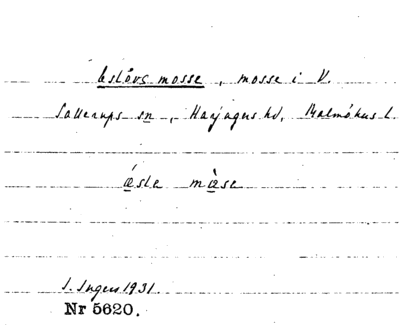 Eslövs mosse, mosse i V.
Sallerups sn, Harjagers hd, Malmöhus l.
æsle mose
I. Ingers 1931.
Nr 5620.